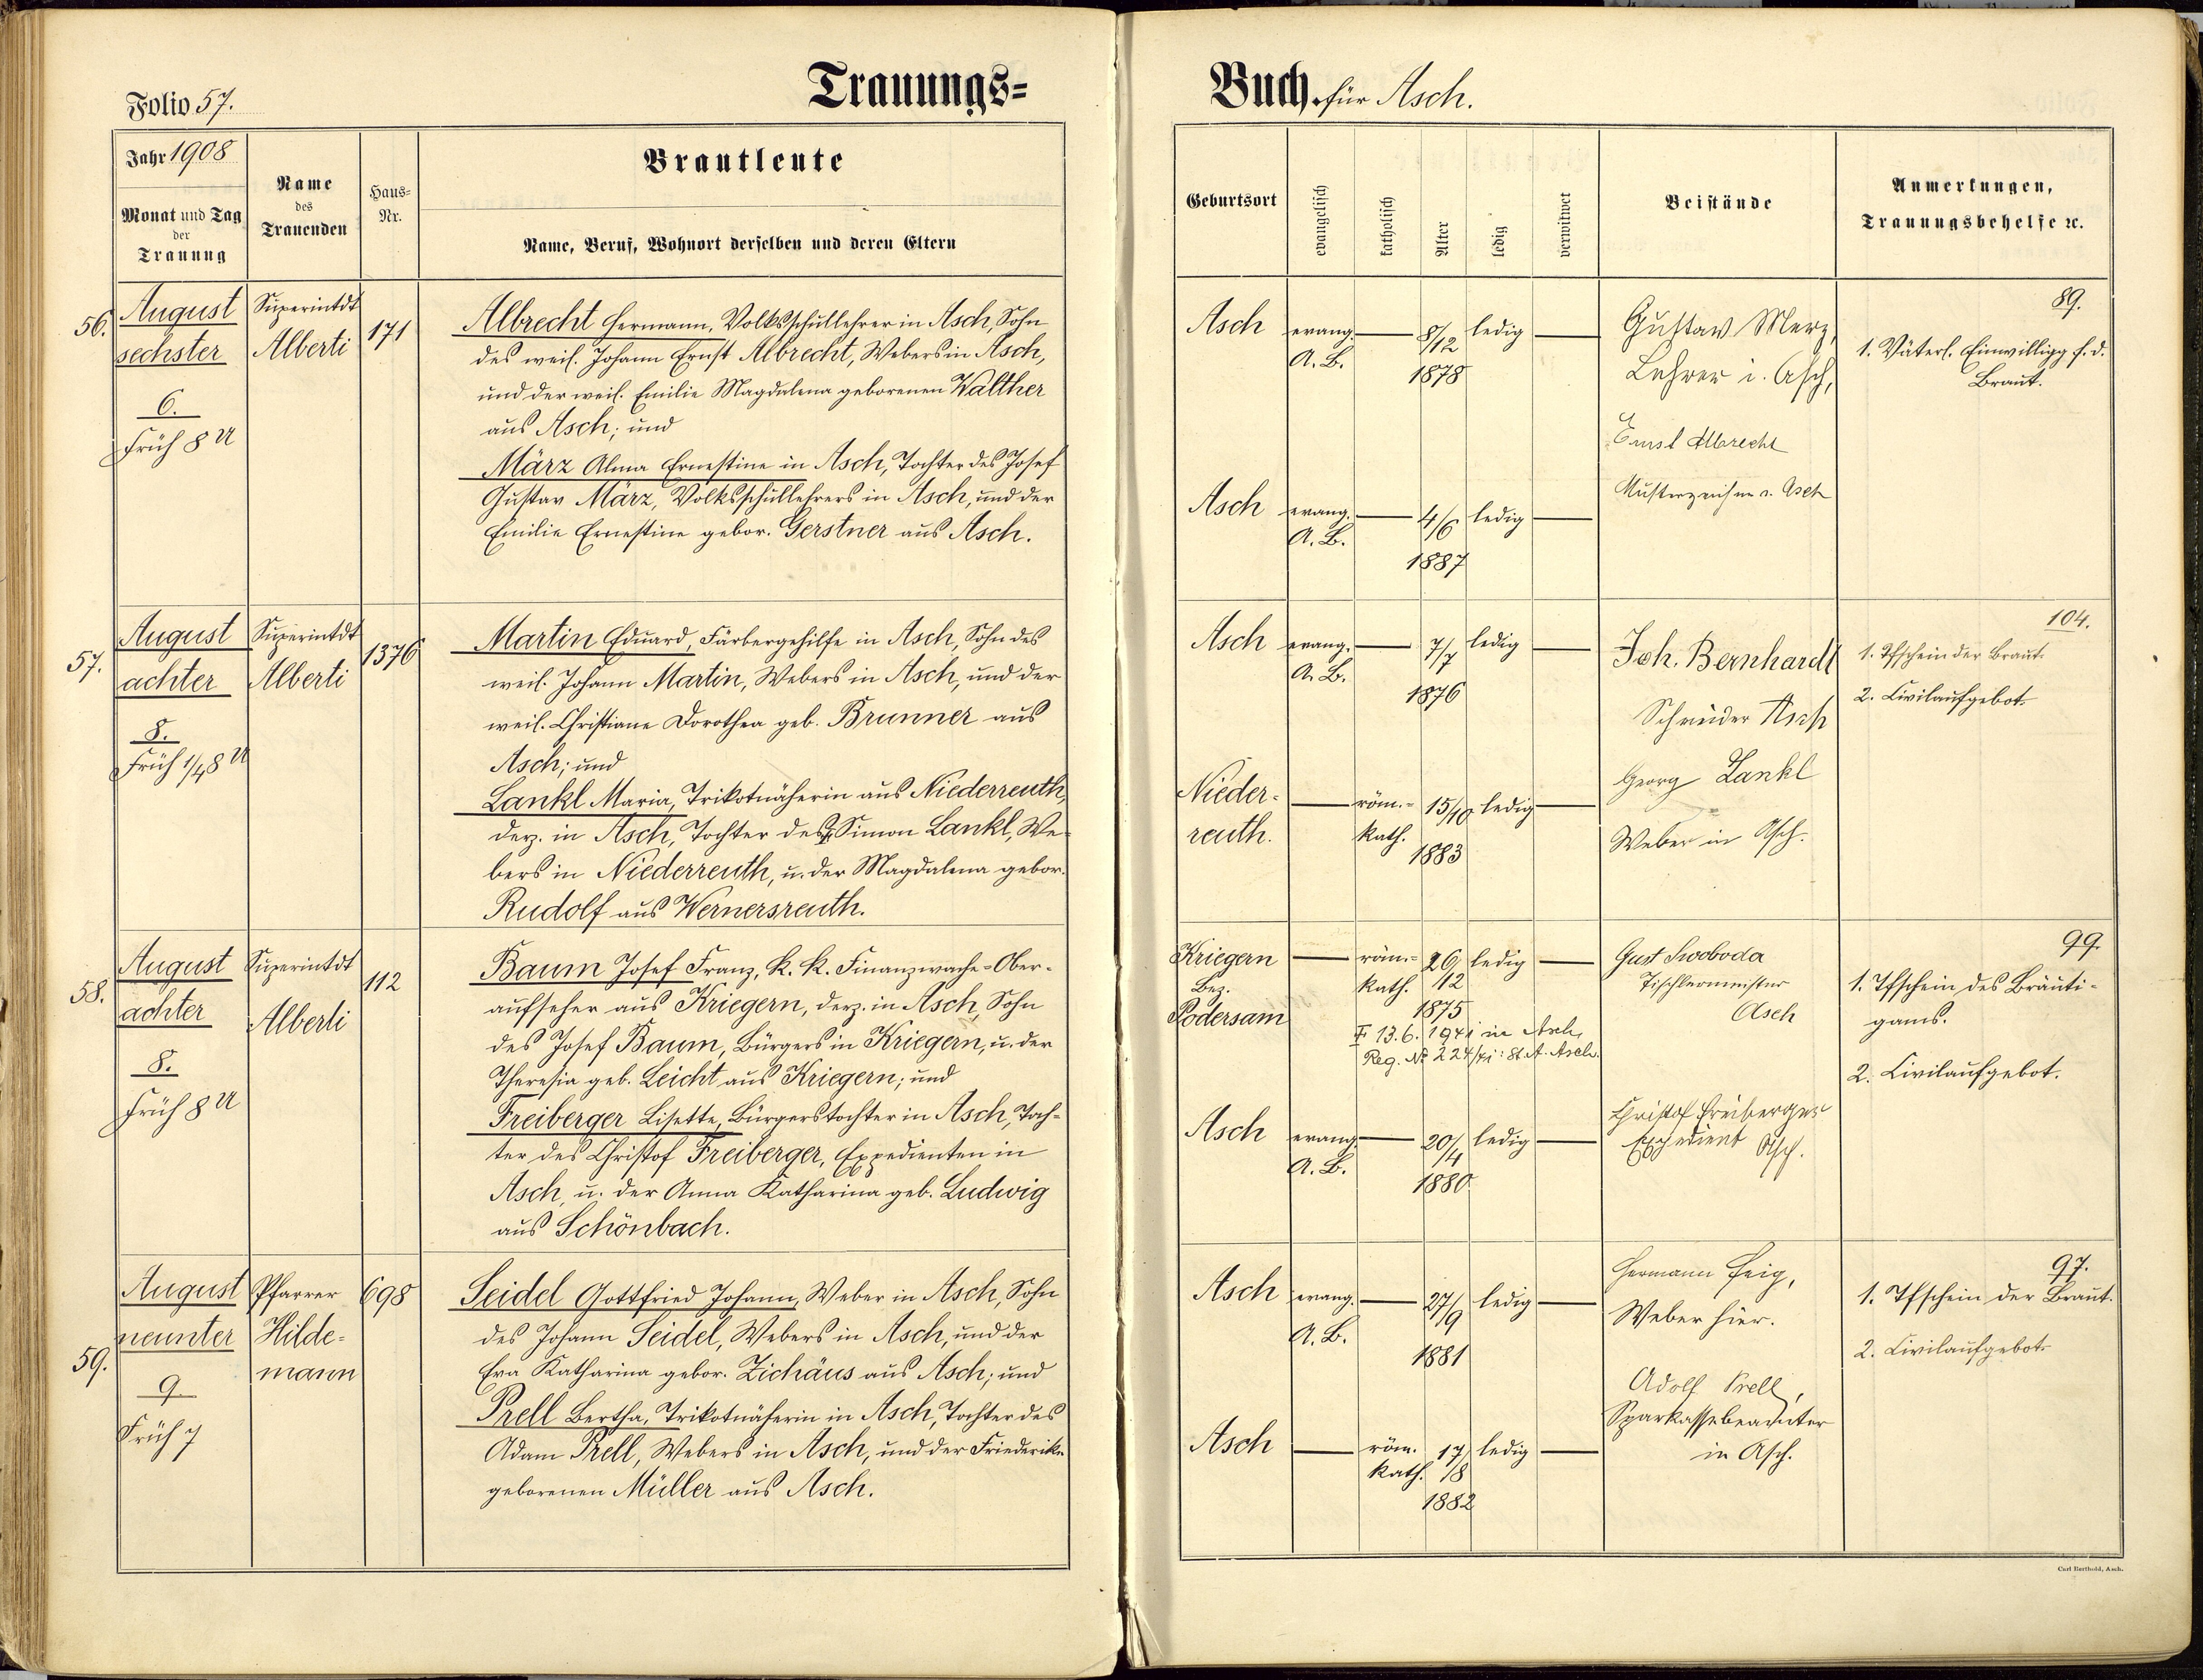 Folio 57.
Trauungs=
Jahr 1908
Monat und Tag
der
Trauung
Name
des
Trauenden
Haus=
Nr.
Brautleute
Name, Beruf, Wohnort derselben und deren Eltern
56.
August
sechster
6.
Früh 8 U
Superintdt
Alberti
171
Albrecht Hermann, Volksschullehrer in Asch, Sohn
des weil. Johann Ernst Albrecht, Webers in Asch,
und der weil. Emilie Magdalena geborenen Walther
aus Asch; und
März Alma Ernestine in Asch, Tochter des Josef
Gustav März, Volksschullehrers in Asch, und der
Emilie Ernestine gebor. Gerstner aus Asch.
57.
August
achter
8.
Früh 1/48 U
Superintdt
Alberti
1376
Martin Eduard, Färbergehilfe in Asch, Sohn des
weil. Johann Martin, Webers in Asch, und der
weil. Christiane Dorothea geb. Brunner aus
Asch; und
Lankl Maria, Trikotnäherin aus Niederreuth,
derz. in Asch, Tochter des Simon Lankl, We-
bers in Niederreuth, u. der Magdalena gebor.
Rudolf aus Wernersreuth.
58.
August
achter
8.
Früh 8 U
Superintdt
Alberti
112
Baum Josef Franz, k. k. Finanzwache=Ober-
aufseher aus Kriegern, derz. in Asch, Sohn
des Josef Baum, Bürgers in Kriegern, u. der
Theresia geb. Leicht aus Kriegern; und
Freiberger Lisette, Bürgerstochter in Asch, Toch-
ter des Christof Freiberger, Expedienten in
Asch, u. der Anna Katharina geb. Ludwig
aus Schönbach.
59.
August
neunter
9
Früh 7
Pfarrer
Hilde-
mann
698
Seidel Gottfried Johann, Weber in Asch, Sohn
des Johann Seidel, Webers in Asch, und der
Eva Katharina gebor. Zichäus aus Asch; und
Prell Bertha, Trikotnäherin in Asch, Tochter des
Adam Prell, Webers in Asch, und der Friederike
geborenen Müller aus Asch.
Buch für Asch.
Geburtsort
evangelisch
katholisch
Alter
ledig
verwitwet
Beistände
Anmerkungen,
Trauungsbehelfe ꝛc.
Asch evang. 8/12 ledig
A. B.
1878
Asch evang. 4/6 ledig
A. B.
1887
Gustav Merz,
Lehrer i. Asch,
Ernst Albrecht
Musterzeichner i. Asch
89.
1. Väterl. Einwilligg f. d.
Braut.
Asch evang. 7/7 ledig
A. B.
1876
Nieder- röm.- 15/10 ledig
reuth. kath.
1883
Joh. Bernhardt
Schneider Asch
Georg Lankl
Weber in Asch.
104.
1. Tfschein der Braut.
2. Civilaufgebot.
Kriegern röm.- 26/12 ledig
Bez. kath.
Podersam 1875
13.6.1941 in Asch,
Reg. № 224/41: St. A. Asch.
Asch evang. 20/4 ledig
A. B.
1880
Gust Swoboda
Tischlermeister
Asch
Christof Freiberger
Expedient Asch.
99.
1. Tfschein des Bräuti-
gams.
2. Civilaufgebot.
Asch evang. 27/9 ledig
A. B.
1881
Asch röm. 17/8 ledig
kath.
1882
Hermann Feig,
Weber hier.
Adolf Prell,
Sparkassebeamter
in Asch.
97.
1. Tfschein der Braut.
2. Civilaufgebot.
Carl Berthold, Asch.